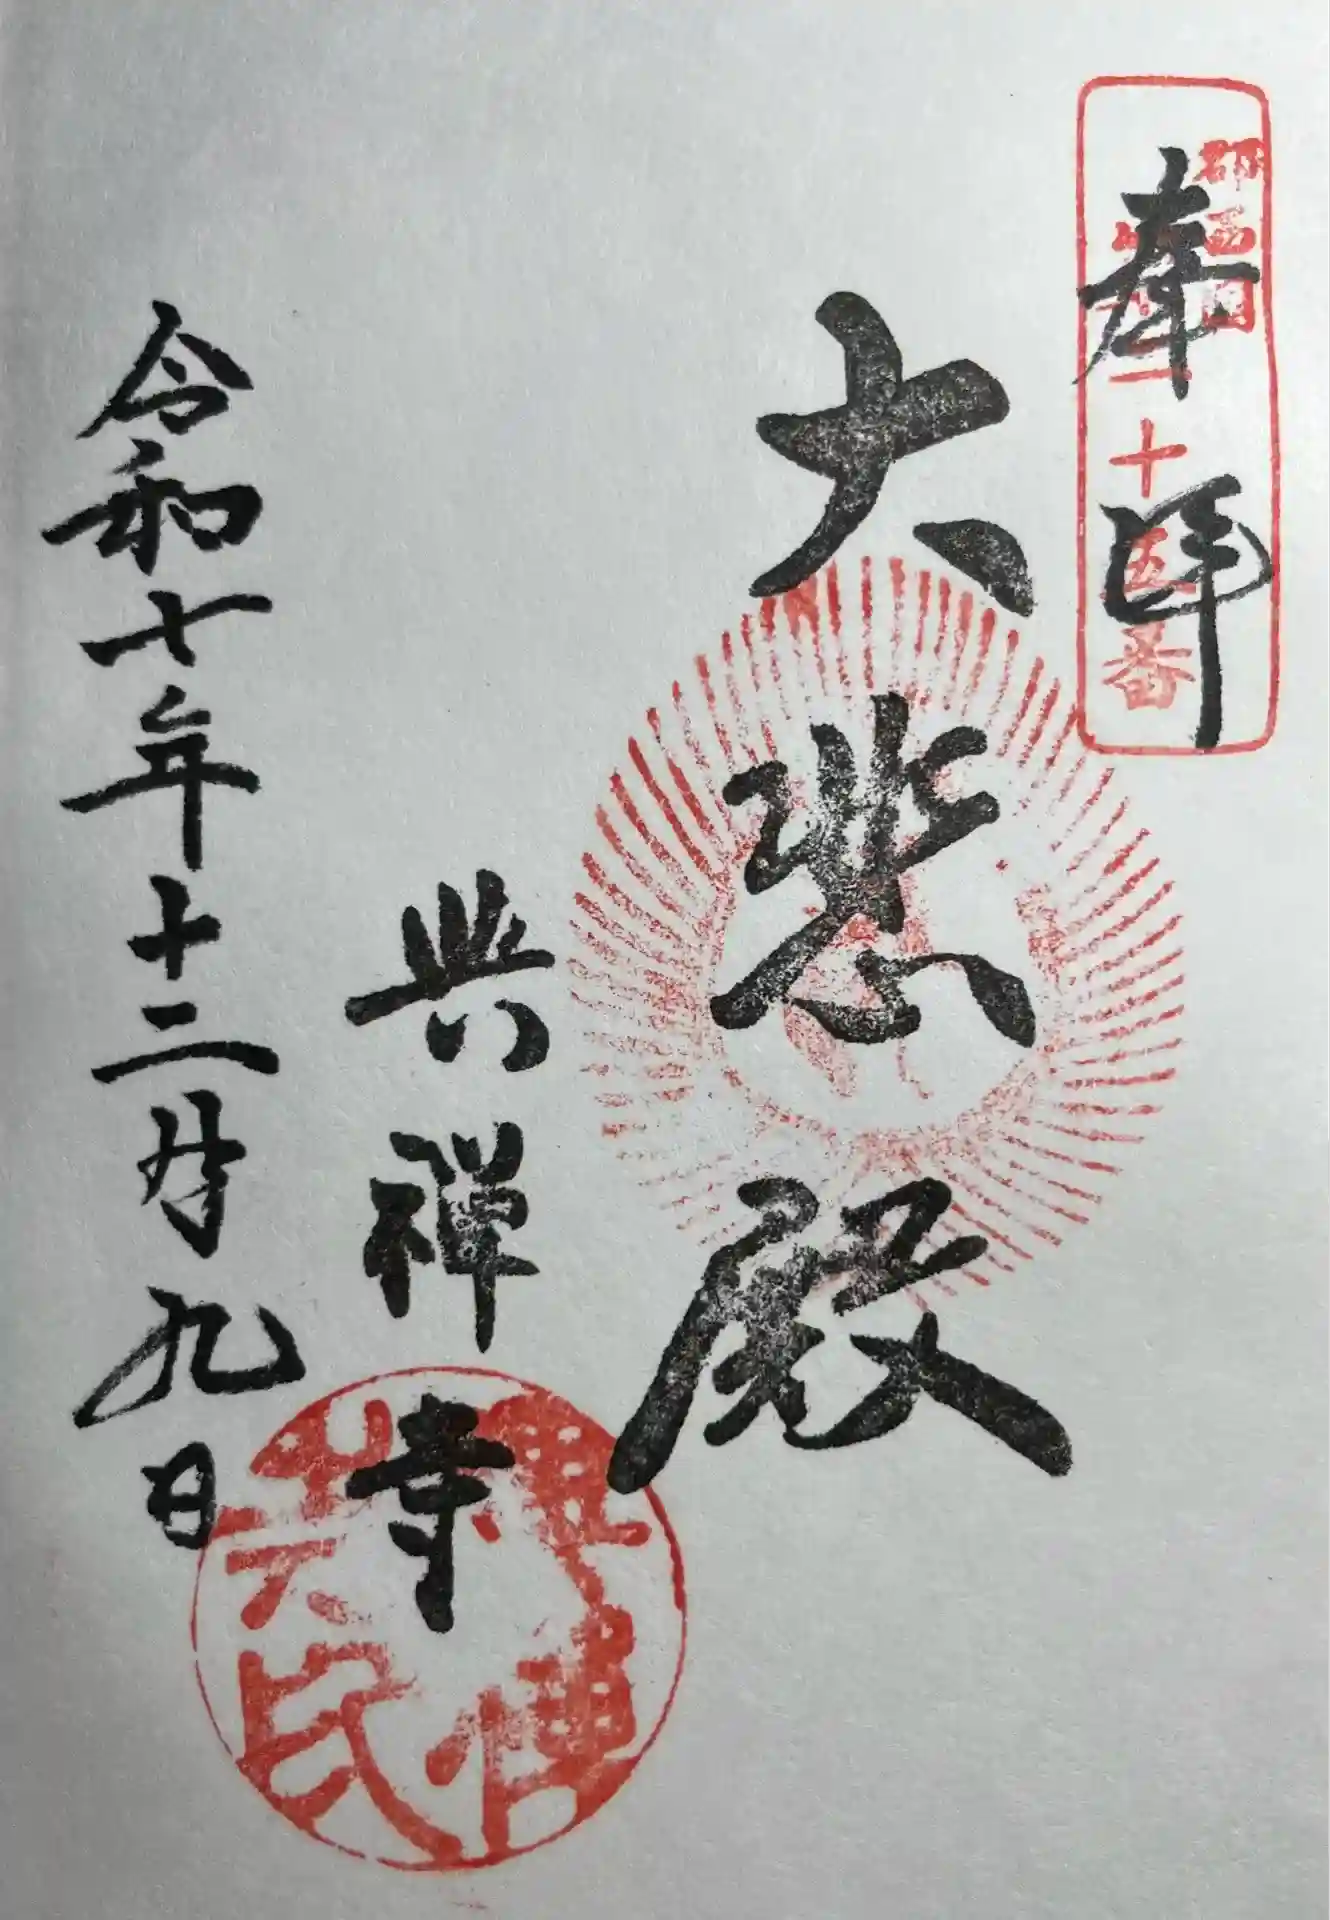 奉拝
郡西国
二十五番
大悲殿
興禅寺
令和七年十二月九日